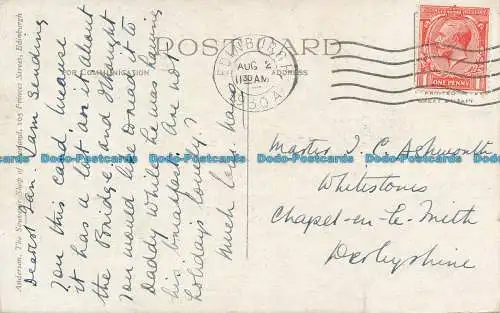 POST CARD
FOR COMMUNICATION
ADDRESS
EDINBURGH
AUG 2
1930
ONE PENNY
PRINTED IN
GREAT BRITAIN
Anderson, The Souvenir Shop of Scotland, 105 Princes Street, Edinburgh
Dearest Ian. I am sending
you this card because
it has a lot on it about
the Bridge and I thought
you would like to read it to
Daddy while he was having
his breakfast. Are not
holidays lovely?
Much love
Master I. C. Ashworth
Whitestones
Chapel-en-le-Frith
Derbyshire
Postcards
Postcards
Postcards
Postcards